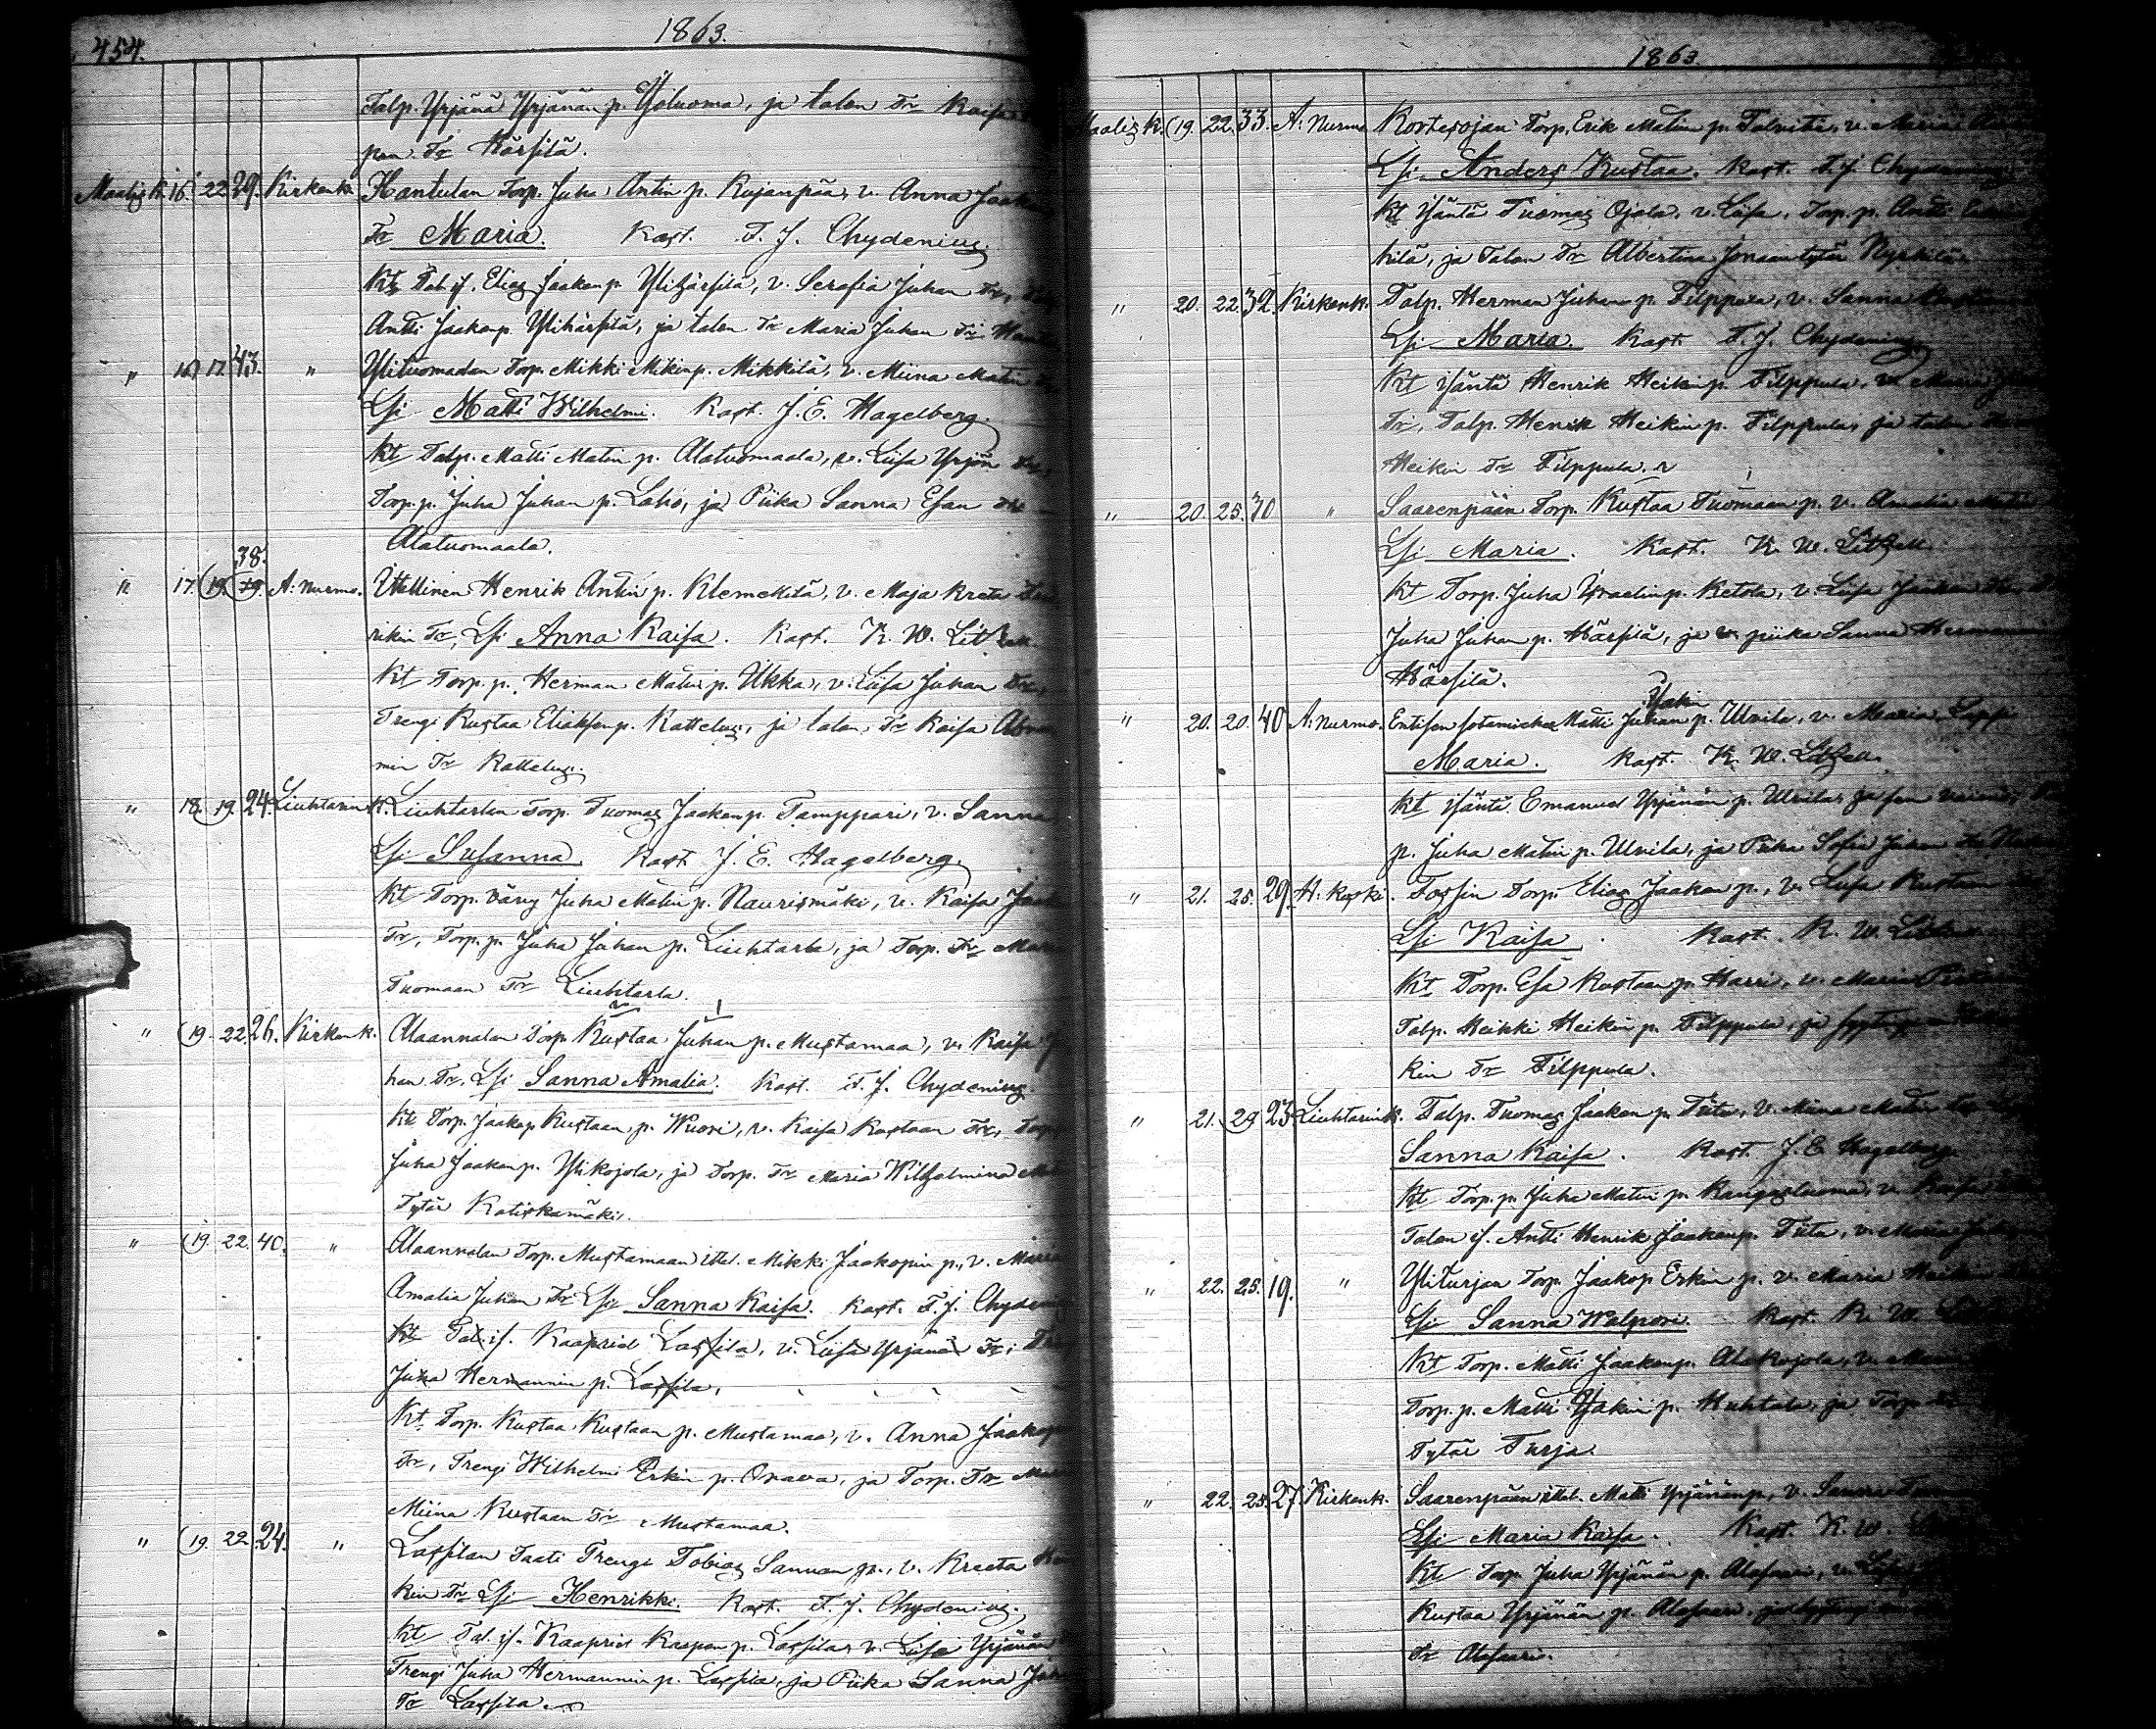 454.
1863.
Talp. Yrjänä Yrjänän p. Yoluoma, ja talon Tr Kaisa
pan Tr Kärsilä.
Maalisk. 16. 22. 29. Kirkonk. Hantulan Torp. Juha Antin p. Kujanpää, v. Anna Jaakon
Tr Maria. Kast. F. J. Chydenius
Kt Tal. is. Elias Jaakon p. Ylihärsilä, v. Serafia Juhan Tr,
Antti Jaakon p. Ylihärsilä, ja talon Tr Maria Juhan Tr
" 16. 17. 43. " Ylituomaalan Torp. Mikki Mikin p. Mikkilä, v. Miina Matin
Lsi Matti Wilhelmi. Kast. J. E. Hagelberg.
Kt Talp. Matti Matin p. Alatuomaala, v. Liisa Yrjön Tr,
Torp. p. Juha Juhan p. Laho, ja Piika Sanna Esan Tr
Alatuomaala.
" 17. (19. 19. 38. A: Nurmo. Itellinen Henrik Antin p. Klemettilä, v. Maja Kreta
rikin Tr, Lsi Anna Kaisa. Kast. K. W. Litzen
Kt Torp. p. Herman Matin p. Ukka, v. Liisa Juhan Tr,
Trengi Kustaa Eliaksen p. Kattelus, ja talon Tr Kaisa
min Tr Kattelus.
" 18. 19. 24. Liuhtarink. Liuhtarlan Torp. Tuomas Jaakon p. Tamppari, v. Sanna
Lsi Susanna. Kast J. E. Hagelberg.
Kt Torp. väv Juha Matin p. Naurismäki, v. Kaisa
Tr, Torp. p. Juha Juhan p. Liuhtarla, ja Torp. Tr
Tuomaan Tr Liuhtarla.
" (19. 22. 26. Kirkonk. Alaannalan Torp Kustaa Juhan p. Mustamaa, v. Kaisa
han Tr. Lsi Sanna Amalia. Kast. F. J. Chydenius
Kt Torp. Jaakop Kustaan p. Wuori, v. Kaisa Kustaan Tr,
Juha Jaakon p. Ylikojola, ja Torp. Tr Maria Wilhelmina
Tytär Katiskamäki.
" (19. 22. 40. " Alaannalan Torp. Mustamaan ittel. Mikki Jaakopin p., v. Maria
Amalia Juhan Tr Lsi Sanna Kaisa. Kast. F. J. Chydenius
Kt Tal. is. Kaaprid Lassila, v. Liisa Yrjänän Tr,
Juha Hermannin p. Lassila,
Kt Torp. Kustaa Kustaan p. Mustamaa, v. Anna Jaakop
Tr, Trengi Wilhelmi Erkin p. Orava, ja Torp. Tr
Miina Kustaan Tr Mustamaa.
" (19. 22. 24. " Lassilan Taati Trengi Tobias Sannan p., v. Kreeta
kin Tr Lsi Henrikki. Kast. F. J. Chydenius.
Kt Tal. is. Kaaprid Kaapon p. Lassila, v. Liisa Yrjänän
Trengi Juha Hermannin p. Lassila, ja Piika Sanna
Tr Lassila
1863
Maalisk. (19. 22. 33. A: Nurmo Kortesojan Torp. Erik Matin p. Talvitie, v. Maria
Lsi Anders Kustaa. Kast. F. J. Chydenius
Kt Isäntä Tuomas Ojala, v. Liisa, Torp. p. Antti
kilä, ja Talon Tr Albertina Jonaantytär Nyrkilä
" 20. 22. 32. Kirkonk. Talp. Herman Juhan p. Filppula, v. Sanna
Lsi Maria. Kast. F. J. Chydenius
Kt Isäntä Henrik Heikin p. Filppula, v. Maria
Tr, Talp. Henrik Heikin p. Filppula, ja talon
Heikin Tr Filppula.
" 20. 25. 30 " Saarenpään Torp. Kustaa Tuomaan p. v. Amalia
Lsi Maria. Kast. K. W. Litzen.
Kt Torp. Juha Israelin p. Ketola, v. Liisa Jaakon
Juha Juhan p. Härsilä, ja piika Sanna Herman
Härsilä.
" 20. 20. 40 A. Nurmo. Entisen sotamiehen Matti Juhan Isakin p. Ulvila, v. Maria, Lapsi
Maria. Kast. K. W. Litzen
Kt Isäntä Emanuel Yrjänän p. Ulvila ja sen vaimo,
p. Juha Matin p. Ulvila, ja Piika Sofia Juhan Tr
" 21. 25. 29. H: koski. Fossin Torp. Elias Jaakon p., v. Liisa Kustaan
Lsi Kaisa. Kast. K. W. Litzen
Kt Torp. Esa Kustaan p. Harri, v. Maria
Talp. Heikki Heikin p. Filppula, ja
kin Tr Filppula.
" 21. 29 23. Liuhtarink. Talp. Tuomas Jaakon p. Tiitu, v. Miina Matin
Sanna Kaisa. Kast. J. E. Hagelberg
Kt Torp. p. Juha Matin p. Kangasluoma, v. Kaisa
Talon is. Antti Henrik Jaakon p. Tiitu, v. Maria
" 22. 25. 19. " Yliturjan Torp. Jaakop Erkin p. v. Maria Heikin
Lsi Sanna Walpori. Kast. K. W.
Kt Torp. Matti Jaakon p. Alakojola, v.
Torp. p. Matti Isakin p. Huhtala, ja Torp.
Tytär Turja.
" 22. 25. 27. Kirkonk. Saarenpään ittel. Matti Yrjänän p., v. Sanna
Lsi Maria Kaisa. Kast. K. W.
Kt Torp. Juha Yrjänän p. Alasaari, v.
Kustaa Yrjänän p. Alasaari, ja
Tr Alasaari.